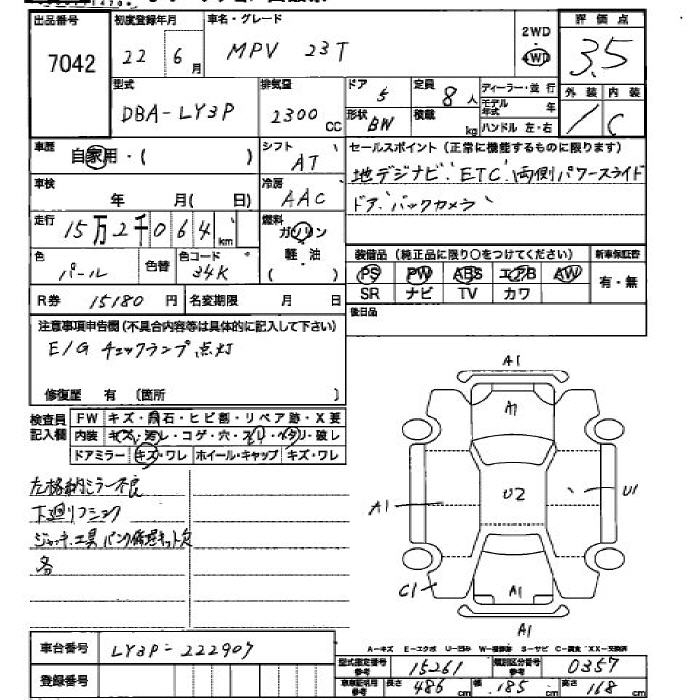 出品番号 初度登録年月 車名・グレード 評価点
7042 22年6月 MPV 23T 2WD 4WD 3.5
型式 排気量 ドア 定員 ディーラー・並行 外装 内装
DBA-LY3P 2300CC 5 8人 モデル年式 年 / C
形状 積載 ハンドル 左・右
BW kg
車歴 自家用・( ) シフト AT セールスポイント(正常に機能するものに限ります)
車検 年 月( 日) 冷房 AAC 地デジナビ、ETC、両側パワースライド
ドア、バックカメラ
走行 15万2千064km 燃料 ガソリン
軽油
( )
色 パール 色替 色コード 34K
装備品(純正品に限り○をつけてください) 新車保証書
PS PW ABS エアB AW 有・無
SR ナビ TV カワ
R券 15180円 名変期限 月 日
後日品
注意事項申告欄(不具合内容等は具体的に記入して下さい)
E/G チェックランプ点灯
修復歴 有 〔箇所 〕
検査員記入欄 FW キズ・飛石・ヒビ割・リペア跡・X要
内装 キズ・汚レ・コゲ・穴・スレ・ヘタリ・破レ
ドアミラー キズ・ワレ ホイール・キャップ キズ・ワレ
左格納ミラー不良
下廻りフシ
ジャッキ、工具 パンク修理キット欠
各
A1
A1
U2
A1
U1
C1
A1
A1
A-キズ E-エクボ U-凹み W-補修跡 S-サビ C-腐食 XX-交換済
車台番号 LY3P-222907
登録番号
型式指定番号 参考 15261 類別区分番号 参考 0357
車庫証明用 参考 長さ 486cm 幅 185cm 高さ 168cm